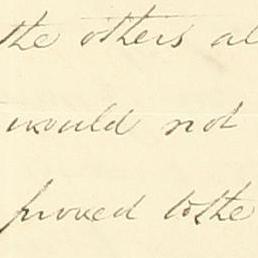 the others al
would not
proved to the